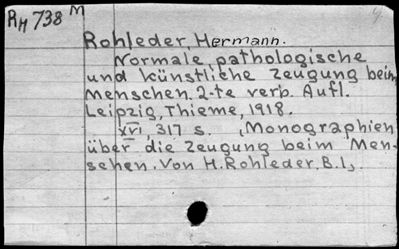 RH 738 M
Rohleder, Hermann.
Normale, pathologische
und künstliche Zeugung beim
Menschen. 2-te verb. Aufl.
Leipzig, Thieme, 1918.
XVI, 317 s. (Monographien
über die Zeugung beim Men-
schen. Von H. Rohleder. B. I).